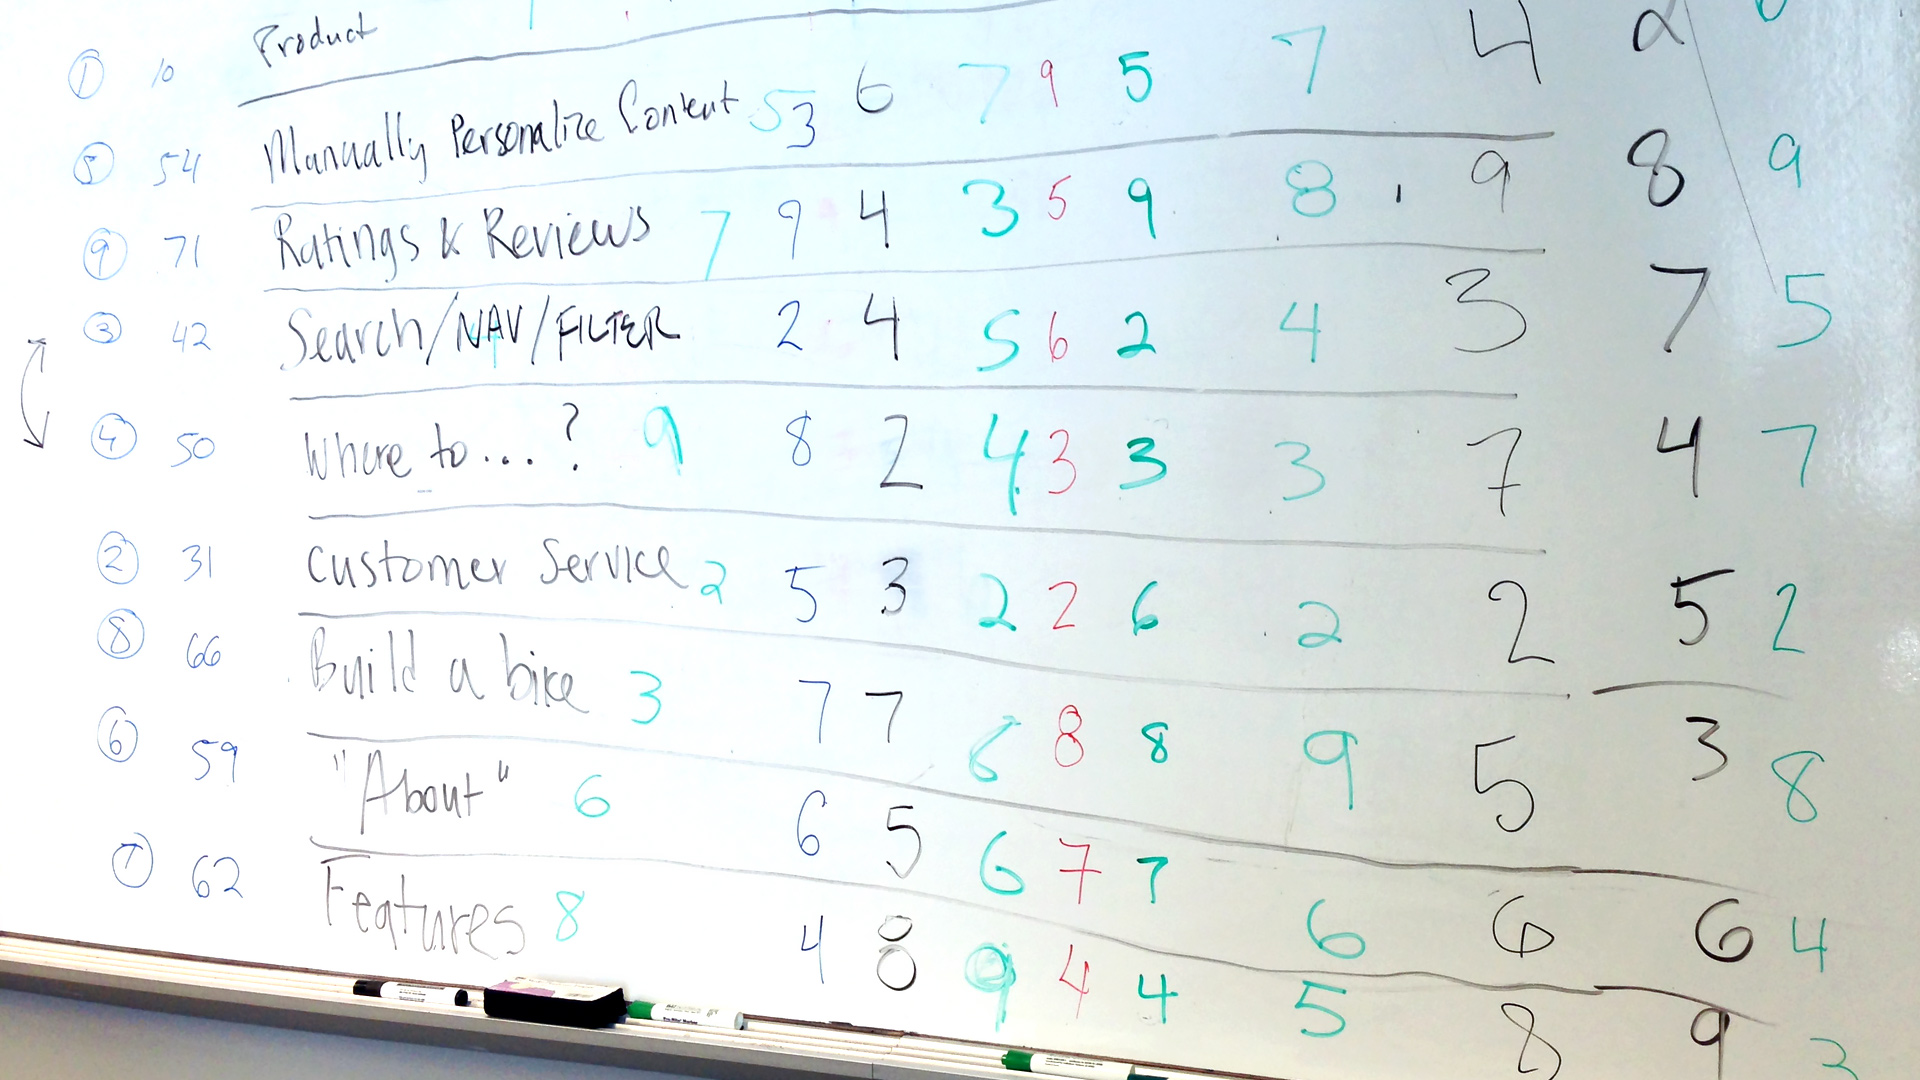 ① 10 Product
⑤ 54 Manually Personalize Content 5 3 6 7 9 5 7 4 2 6
⑨ 71 Ratings & Reviews 7 9 4 3 5 9 8 9 8 9
③ 42 Search/NAV/FILTER 2 4 5 6 2 4 3 7 5
④ 50 Where to...? 9 8 2 4 3 3 3 7 4 7
② 31 Customer Service 2 5 3 2 2 6 2 2 5 2
⑧ 66 Build a bike 3 7 7 8 8 8 9 5 3 8
⑥ 59 "About" 6 6 5 6 7 7 6 6 6 4
⑦ 62 Features 8 4 8 9 4 4 5 8 9 3